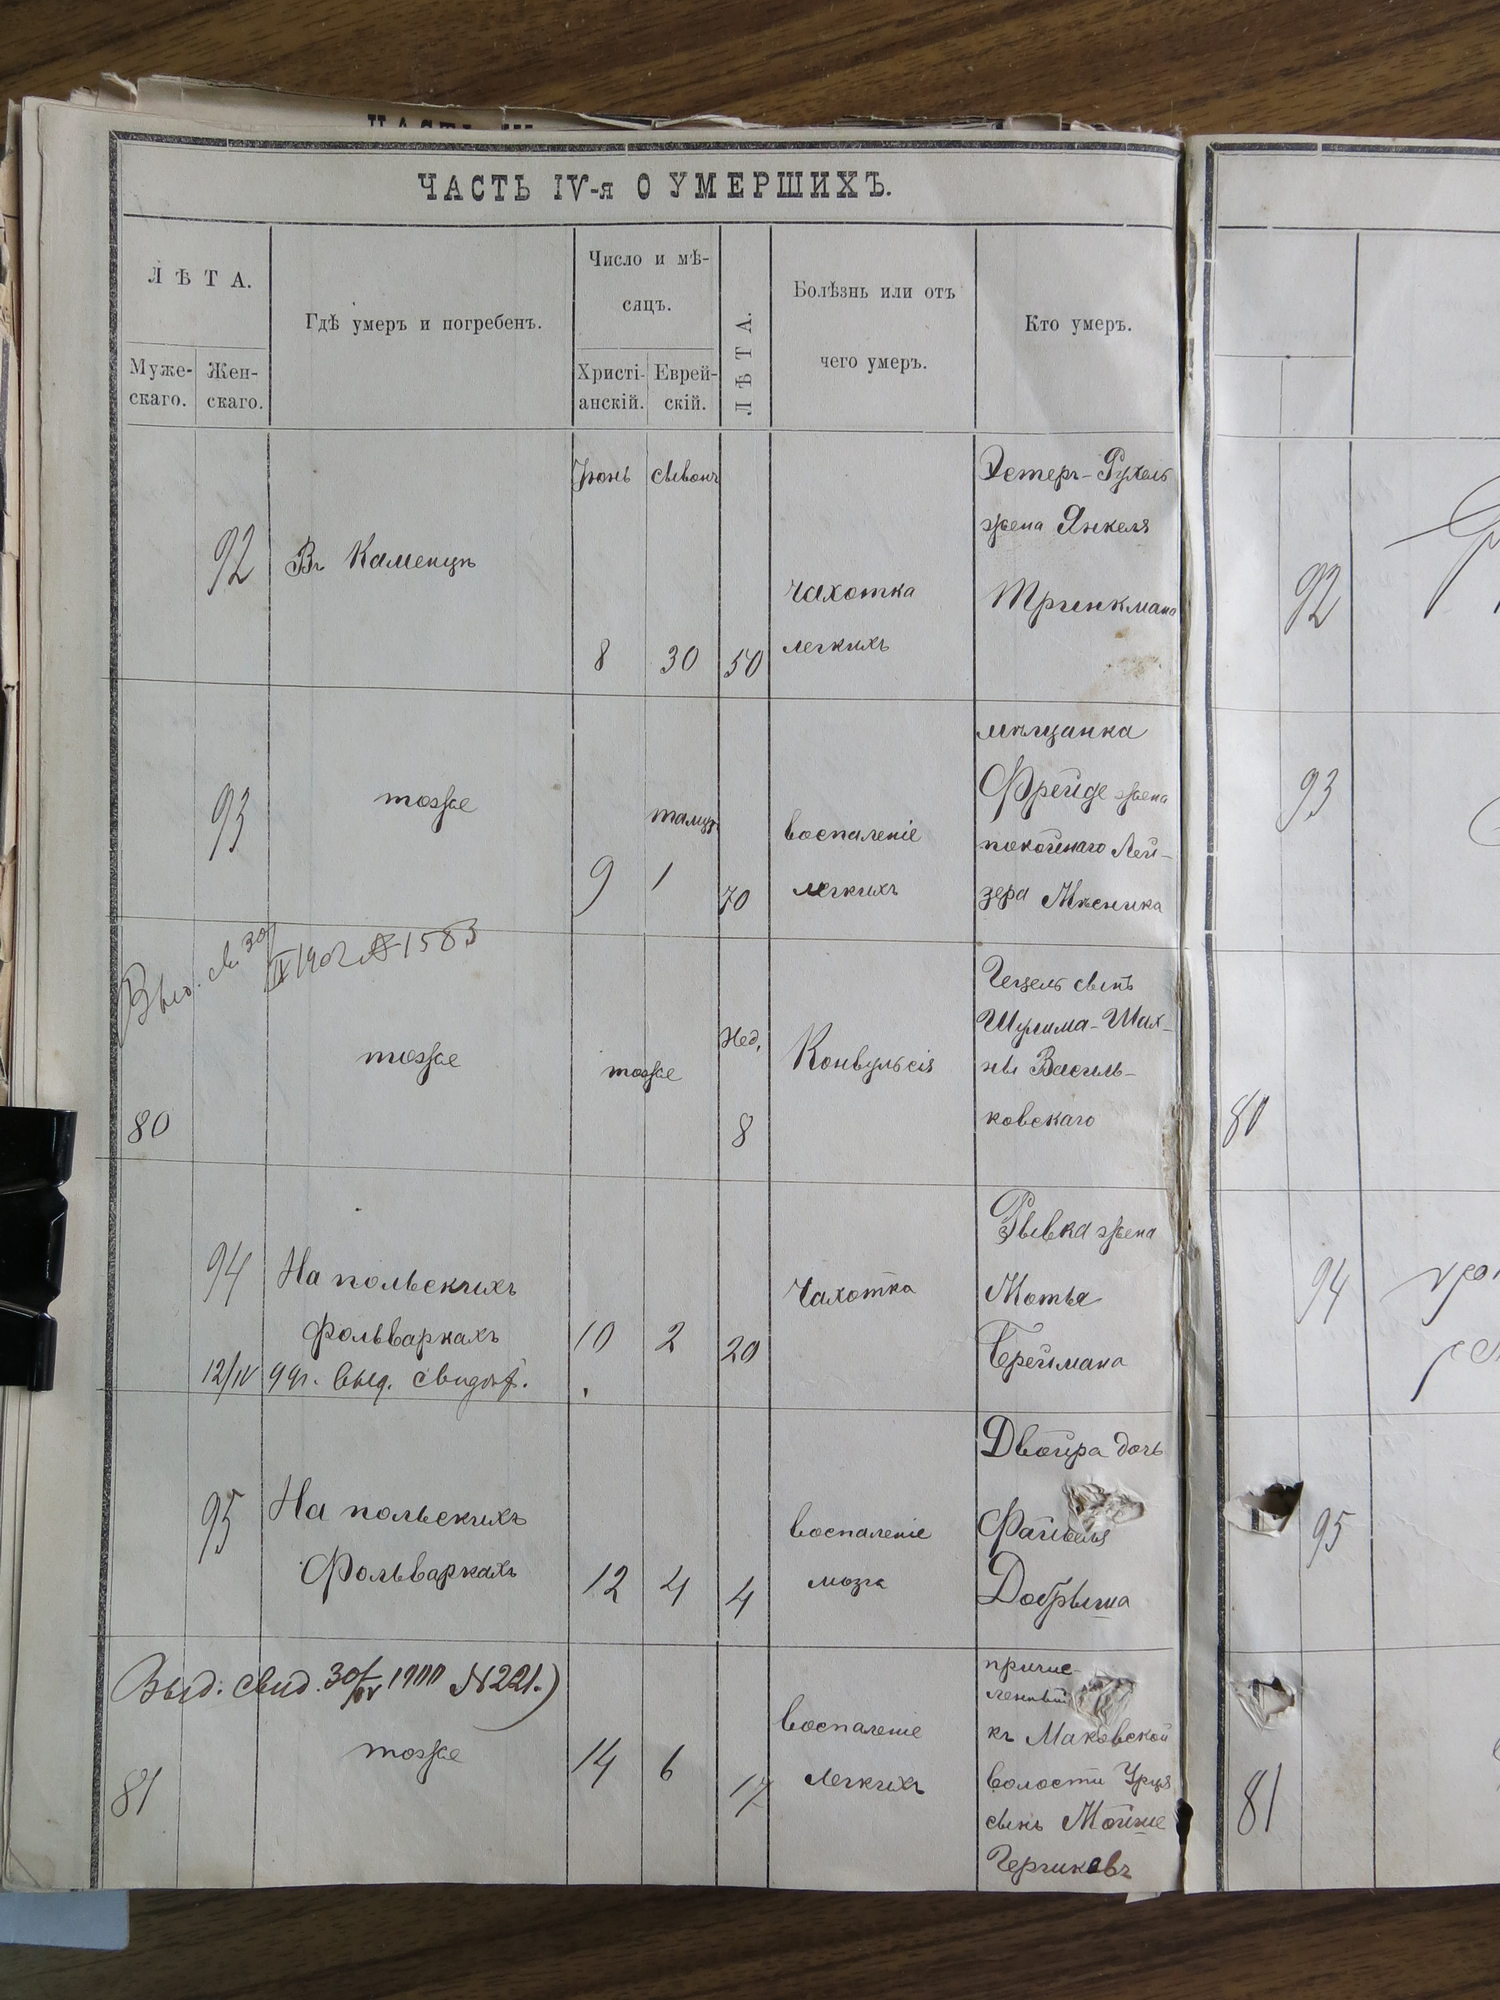 ЧАСТЬ IV-я О УМЕРШИХЪ.
ЛѢТА.
Муже-
скаго.
Жен-
скаго.
Гдѣ умеръ и погребенъ.
Число и мѣ-
сяцъ.
Христі-
анскій.
Еврей-
скій.
ЛѢТА.
Болѣзнь или отъ
чего умеръ.
Кто умеръ.
92
Въ Каменцѣ
Іюнь
8
Сывонъ
30
50
чахотка
легкихъ
Эстеръ-Рухель
жена Янкеля
Тринкмана
92
93
тоже
9
тамуз
1
70
воспаленіе
легкихъ
мѣщанка
Фрейде жена
покойнаго Лей-
зера Мясника
93
Выд. св. 30/IX 1902 № 1583
80
тоже
тоже
Нед.
8
Конвульсія
Гецель сынъ
Шулима-Шах-
ны Василь-
ковскаго
80
94
На польскихъ
фольваркахъ
12/IV 99г. выд. свидот.
10
2
20
Чахотка
Рывка жена
Мотья
Бреймана
94
95
На польскихъ
Фольваркахъ
12
4
4
воспаленіе
мозга
Двойра дочь
Файвеля
Добрыша
95
Выд. свид. 30/IV 1900 N 221.)
81
тоже
14
6
17
воспаленіе
легкихъ
причис-
ленный
къ Маковской
волости Урця
сынъ Мойше
Гершковъ
81